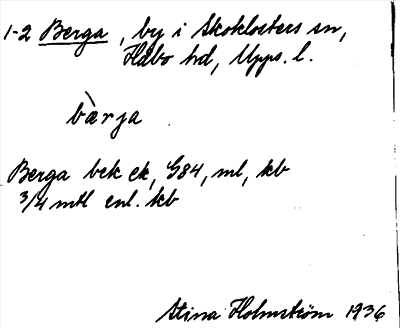 1-2 Berga, by i Skoklosters sn,
Håbo hd, Upps. l.
bàrja
Berga bek ek, G84, ml, kb
3/4 mtl enl. kb
Stina Holmström 1936